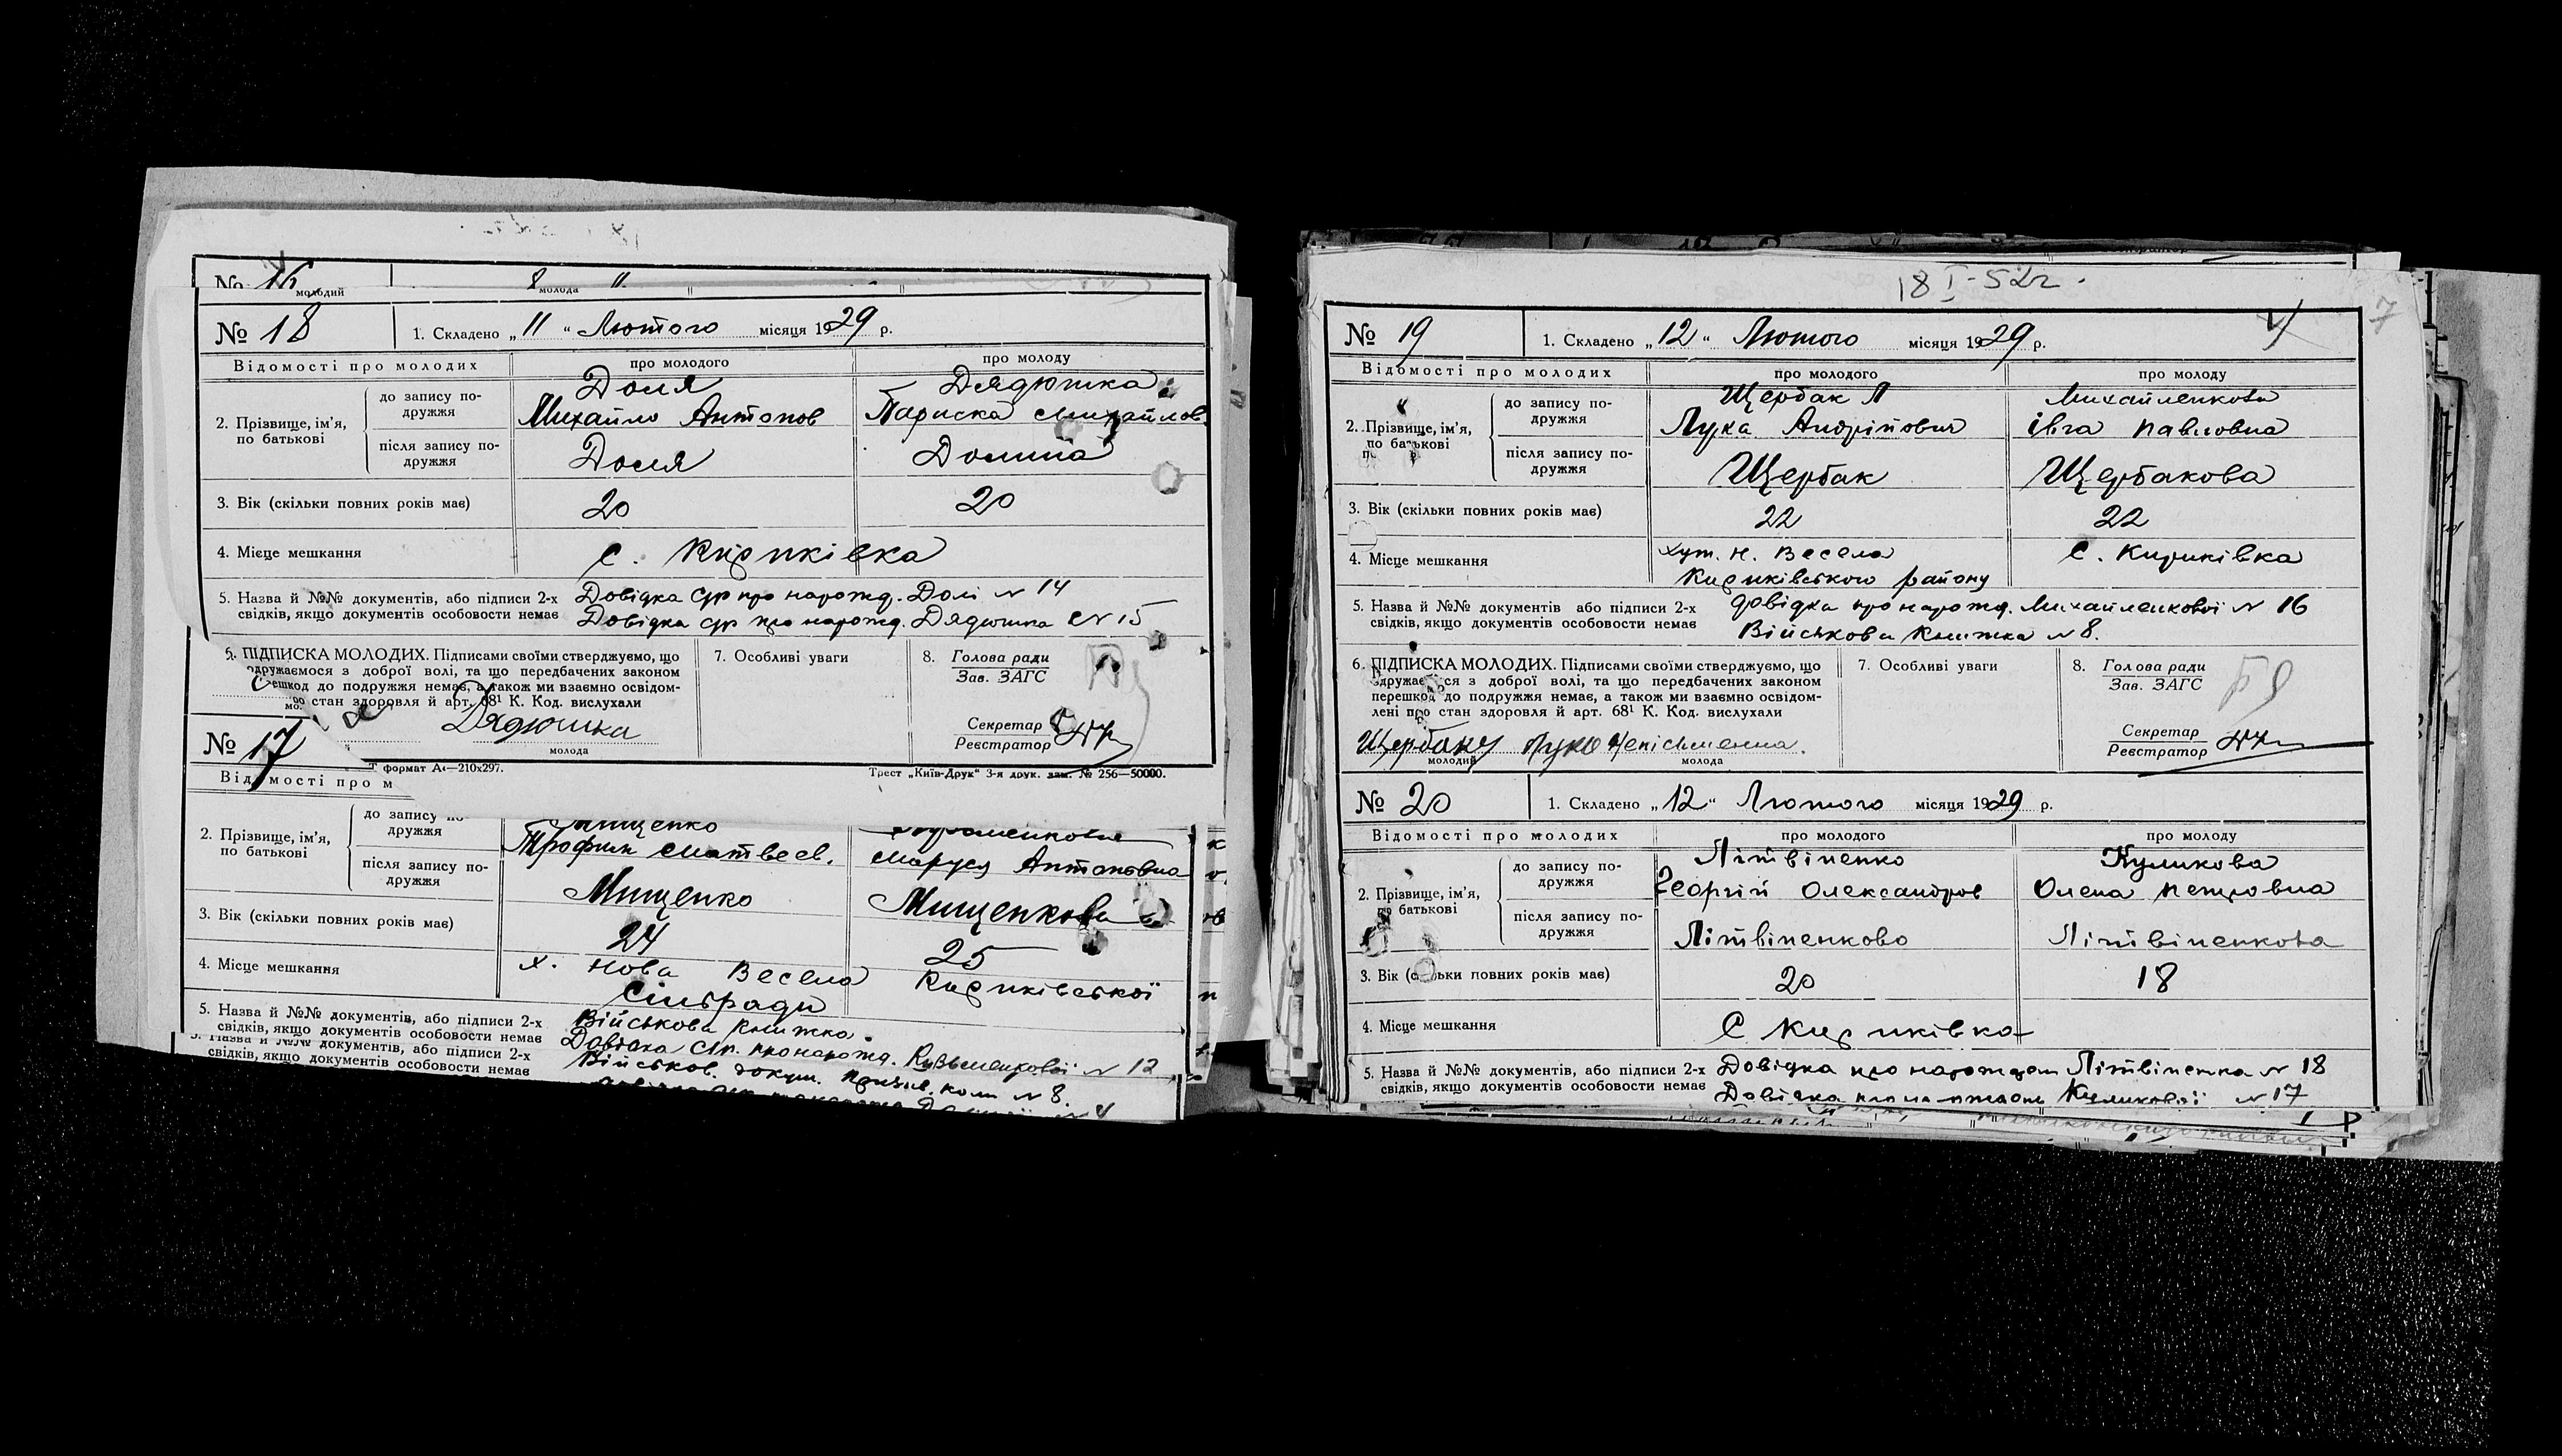 № 16
8
молодий
молода
№ 18
1. Складено „ 11 “ Лютого місяця 1929 р.
Відомості про молодих
про молодого
про молоду
2. Прізвище, ім'я, по батькові
до запису по-
дружжя
Доля
Михайло Антонов
Дядюшка
Параска Михайлов.
після запису по-
дружжя
Доля
Долина
3. Вік (скільки повних років має)
20
20
4. Місце мешкання
с. Кириківка
5. Назва й №№ документів, або підписи 2-х
свідків, якщо документів особовости немає
Довідка с/р про народж. Долі № 14
Довідка с/р про народж. Дядюшка № 15
6. ПІДПИСКА МОЛОДИХ. Підписами своїми стверджуємо, що
одружаємося з доброї волі, та що передбачених законом
перешкод до подружжя немає, а також ми взаємно освідом-
стан здоровля й арт. 68¹ К. Код. вислухали
Дядюшка
молода
7. Особливі уваги
8. Голова ради
Зав. ЗАГС
Секретар
Реєстратор
формат А4—210x297.
Трест „Київ-Друк“ 3-я друк. зам. № 256—50000.
№ 17
Відомості про м
2. Прізвище, ім'я,
по батькові
до запису по-
дружжя
Мищенко
Трофим Матвеев.
Маруся Антоновна
після запису по-
дружжя
Мищенко
Мищенкова
3. Вік (скільки повних років має)
24
25
4. Місце мешкання
х. Нова Весела Кириківської
сільради
5. Назва й №№ документів, або підписи 2-х
свідків, якщо документів особовости немає
Військова книжка.
Довідка с/р. про народж. Кузьменкової № 12
5. Назва й №№ документів, або підписи 2-х
свідків, якщо документів особовости немає
Військов. докум. № 8.
№ 4
18 I - 52 г.
7
№ 19
1. Складено „ 12 “ Лютого місяця 1929 р.
Відомості про молодих
про молодого
про молоду
2. Прізвище, ім'я,
по батькові
до запису по-
дружжя
Щербак Л
Лука Андрійович
Михайленкова
Івга Павловна
після запису по-
дружжя
Щербак
Щербакова
3. Вік (скільки повних років має)
22
22
4. Місце мешкання
хут. Н. Весела
Кириківського району
с. Кириківка
5. Назва й №№ документів або підписи 2-х
свідків, якщо документів особовости немає
Довідка про народж. Михайленкової № 16
Військова книжка № 8.
6. ПІДПИСКА МОЛОДИХ. Підписами своїми стверджуємо, що
одружаємося з доброї волі, та що передбачених законом
перешкод до подружжя немає, а також ми взаємно освідом-
лені про стан здоровля й арт. 68¹ К. Код. вислухали
Щербаку Луко Непісьменна.
молодий
молода
7. Особливі уваги
8. Голова ради
Зав. ЗАГС
Секретар
Реєстратор
№ 20
1. Складено „ 12 “ Лютого місяця 1929 р.
Відомості про молодих
про молодого
про молоду
2. Прізвище, ім'я,
по батькові
до запису по-
дружжя
Літвіненко
Георгій Олександров
Куликова
Олена Петровна
після запису по-
дружжя
Літвіненково
Літвіненкова
3. Вік (скільки повних років має)
20
18
4. Місце мешкання
с Кириківка
5. Назва й №№ документів, або підписи 2-х
свідків, якщо документів особовости немає
Довідка про народжен Літвіненка № 18
Довідка про Куликової № 17